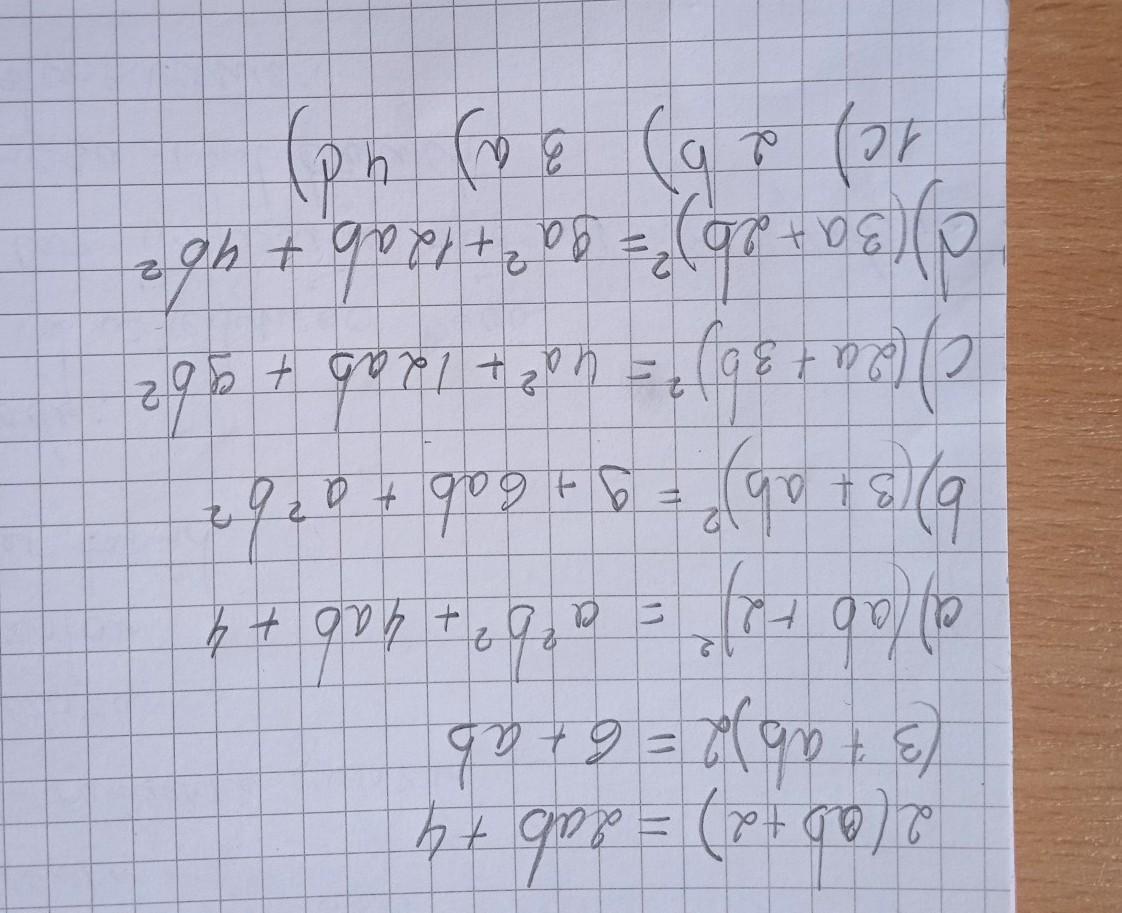 2(ab+2) = 2ab + 4
(3 + ab)2 = 6 + ab
a)(ab + 2)² = a²b² + 4ab + 4
b)(3 + ab)² = 9 + 6ab + a²b²
c)(2a + 3b)² = 4a² + 12ab + 9b²
d)(3a + 2b)² = 9a² + 12ab + 4b²
1c) 2b) 3a) 4d)